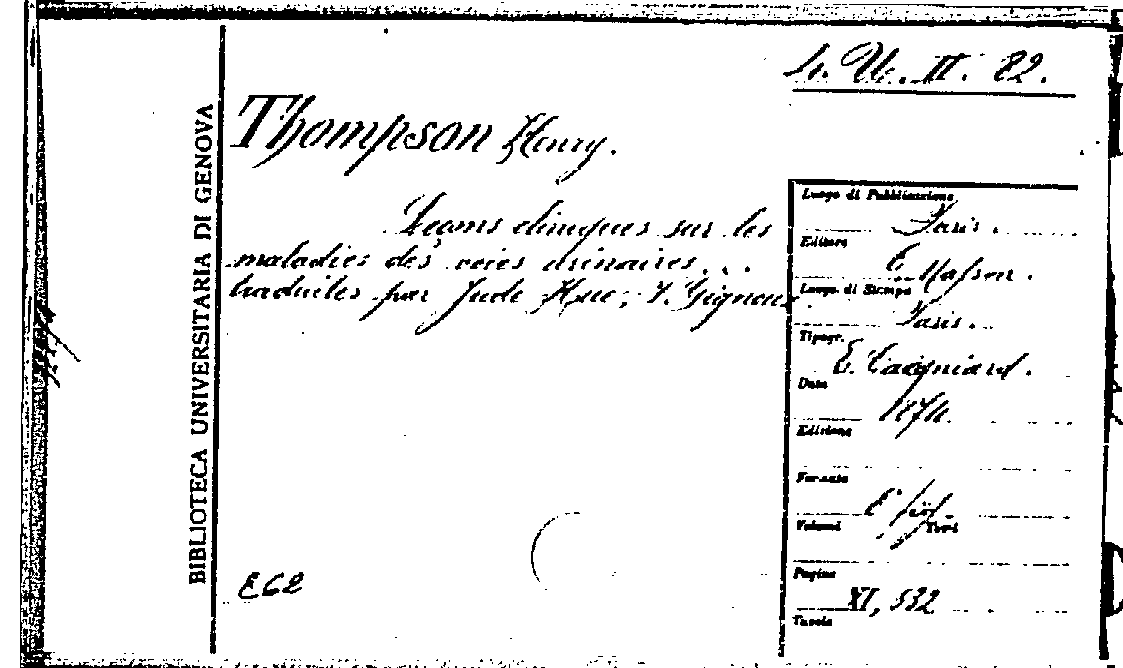 BIBLIOTECA UNIVERSITARIA DI GENOVA
II. 82.
Thompson Henry.
Leçons cliniques sur les
maladies des voies urinaires...
traduites par Jude Hue, F. Gignoux.
Luogo di Pubblicazione
Paris.
Editore
E. Masson.
Luogo di Stampa
Paris.
Tipogr.
E. Cagniard.
Data
1874.
Edizione
Formato
8°
Volumi Tomi
Pagine
XI, 532
Tavole
E62